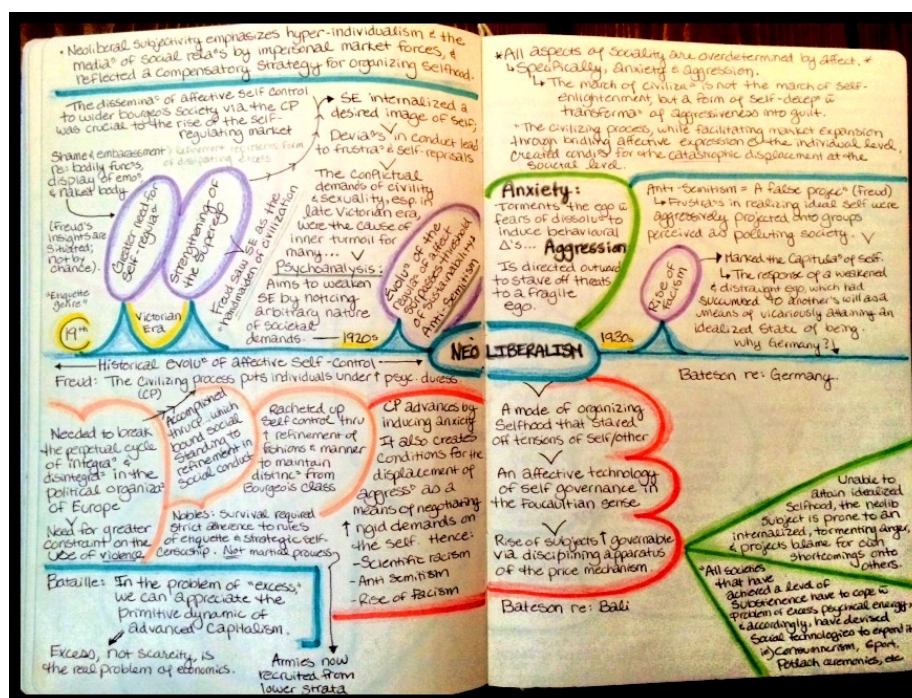 • Neoliberal subjectivity emphasizes hyper-individualism & the
mediaˢ of social relaˢs by impersonal market forces, &
reflected a compensatory strategy for organizing selfhood.
The disseminaˢ of affective self control
to wider bourgeois society via the CP
was crucial to the rise of the self-
regulating market
Shame & embarassment
re: bodily funcs,
display of emoˢ
& naked body
(Freud's
insights are
situated;
not by
chance).
"Etiquette
genre"
refinement represents form
of dissipating excess
Greater need for
self-regulaˢ
Strengthening of
the Superego
Freud saw SE as the
"handmaiden of civilization"
→ SE internalized a
desired image of self;
Deviaˢs in conduct lead
to frustraˢ & self-reprisals
The conflictual
demands of civility
& sexuality, esp. in
late Victorian era,
were the cause of
inner turmoil for
many...
Psychoanalysis:
Aims to weaken
SE by noticing
arbitrary nature
of societal
demands.
Evoluˢ of the
regulaˢ of affect
surpasses threshold
of sustainability
Anti-Semitism
19th
Victorian
Era
1920s
NEOLIBERALISM
1930s
← Historical Evoluˢ of affective Self-Control →
Freud: The Civilizing process puts individuals under ↑ psyc. duress
(CP)
Needed to break
the perpetual cycle
of integraˢ &
disintegraˢ in the
political organizaˢ
of Europe
Need for greater
constraint on the
use of violence
Accomplished
thru CP... which
bound social
standing to
refinement in
social conduct
Racheted up
self control thru
↑ refinement of
fashions & manner
to maintain
distincˢ from
Bourgeois class
Nobles: survival required
strict adherence to rules
of enquette & strategic self-
censorship. Not martial prowess
CP advances by
inducing anxiety
It also creates
conditions for the
displacement of
aggressˢ as a
means of negotiating
rigid demands on
the self. Hence:
- Scientific racism
- Anti Semitism
- Rise of Facism
Bataille: In the problem of "excess,"
we can appreciate the
primitive dynamic of
advanced Capitalism.
Excess, not scarcity, is
the real problem of economics.
Armies now
recruited from
lower strata
*All aspects of sociality are overdetermined by affect. *
↳ Specifically, anxiety & Aggression.
↳ The march of civilizaˢ is not the march of self-
enlightenment, but a form of self-decepˢ w̄
transformaˢ of aggressiveness into guilt.
"The civilizing process, while facilitating market expansion
through bridling affective expression @ the individual level,
created condiˢs for the catastrophic displacement at the
societal level.
Anxiety:
Torments the ego w̄
fears of dissoluˢ to
induce behavioural
Δ's...
Aggression
Is directed outward
to stave off threats
to a fragile
ego.
Anti-Semitism = A false projecˢ (Freud)
↳ Frustraˢs in realizing ideal self were
aggressively projected onto groups
perceived as polluting society.
Rise of
Facism
→ Marked the Capitulaˢ of self.
↳ The response of a weakened
& distraught ego, which had
succumbed to another's will as a
means of vicariously attaining an
idealized state of being.
Why Germany?
Bateson re: Germany
A mode of organizing
Selfhood that staved
off tensions of self/other
An affective technology
of self governance in
the Foucaultian sense
Rise of subjects ↑ governable
via disciplining apparatus
of the price mechanism.
Bateson re: Bali
Unable to
attain idealized
Selfhood, the neolib
subject is prone to an
internalized, tormenting anger,
& projects blame for own
shortcomings onto
others.
*All societies
that have
achieved a level of
Subsistence have to cope w̄
problem of excess psychical energy
& accordingly, have devised
Social technologies to expend it
ie) Consumerism, Sport,
Potlach ceremonies, etc.